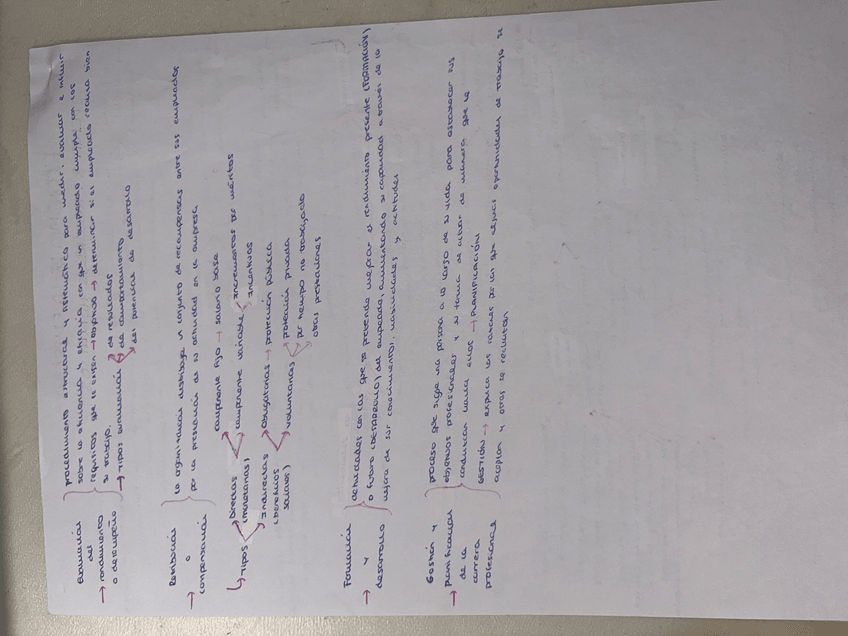 Evaluación del rendimiento o desempeño
procedimiento estructural y sistemático para medir, evaluar e influir
sobre la eficiencia y eficacia con que un empleado cumple con los
requisitos que se exigen → objetivo → determinar si el empleado realiza bien
su trabajo.
→ Tipos evaluación
de resultados
de comportamiento
del potencial de desarrollo
Retribución o compensación
la organización distribuye un conjunto de recompensas entre sus empleados
por la prestación de su actividad en la empresa
Tipos
Directas (monetarias)
componente fijo → salario base
componente variable
incrementos por méritos
Incentivos
Indirectas (beneficios sociales)
obligatorias → protección pública
voluntarias
protección privada
por tiempo no trabajado
otras prestaciones
→ Formación y desarrollo
actividades con las que se pretende mejorar el rendimiento presente (FORMACIÓN)
o futuro (DESARROLLO) del empleado, aumentando su capacidad a través de la
mejora de sus conocimientos, habilidades y actitudes
→ Gestión y planificación de la carrera profesional
proceso que sigue una persona a lo largo de su vida para establecer sus
objetivos profesionales y su forma de actuar de manera que le
conduzcan hacia ellos → PLANIFICACIÓN
GESTIÓN → explica las razones por las que algunas oportunidades de trabajo se
aceptan y otras se rechazan